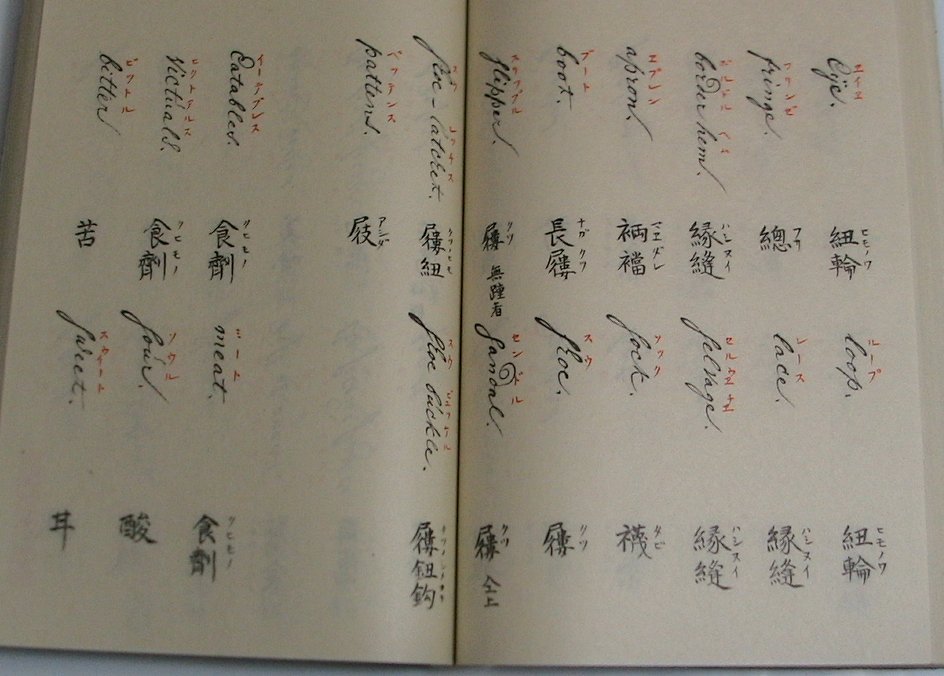 エイエ Eÿe. 紐輪 ヒモノワ ループ loop. 紐輪 ヒモノワ
フリンゼ fringe. 總 フサ レース lace. 縁縫 ハシヌイ
ボルドル ヘム border hem. 縁縫 ハシヌイ selvage. 縁縫 ハシヌイ
エプレン apron. 襠 マエダレ ソック sock. 襪 タビ
ブート boot. 長屨 ナガクツ スウ shoe. 屨 クツ
スリップル slipper. 屨 クツ 無踵者 センドル sandal. 屨 クツ 仝上
スウ レッチス shoe-latchet. 屨紐 クツノヒモ スウ shoe buckle. 屨鈕鈎
ペッテンス pattens. 屐 アシダ
イーテブレス Eatables. 食劑 クヒモノ ミート meat. 食劑 クヒモノ
ヒクトアルス Victuals. 食劑 クヒモノ ソウル sour. 酸
ビットル bitter 苦 スウイート sweet. 甘